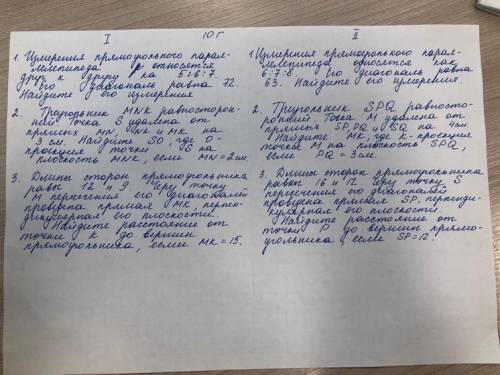 10 Г
I
1. Измерения прямоугольного парал-
лелепипеда относятся
друг к другу как 5:6:7.
Его диагональ равна 72.
Найдите его измерения
2. Треугольник MNK равносторон-
ний. Точка S удалена от
прямых MN, NK и MK на
3 см. Найдите SO, где O -
проекция точки S на
плоскость MNK, если MN=2см.
3. Длины сторон прямоугольника
равны 12 и 9. Через точку
M пересечения его диагоналей
проведена прямая MK, перпен-
дикулярная его плоскости.
Найдите расстояние от
точки K до вершин
прямоугольника, если MK=15.
II
1 Измерения прямоугольного парал-
лелепипеда относятся как
6:7:8. Его диагональ равна
63. Найдите его измерения.
2. Треугольник SPQ равносто-
ронний. Точка M удалена от
прямых SP, PQ и SQ на 4см.
Найдите MK, где K-проекция
точки M на плоскость SPQ,
если PQ=3см.
3. Длины сторон прямоугольника
равны 16 и 12 Через точку S
пересечения его диагоналей
проведена прямая SP, перпенди-
кулярная его плоскости.
Найдите расстояние от
точки P до вершин прямо-
угольника, если SP=12.